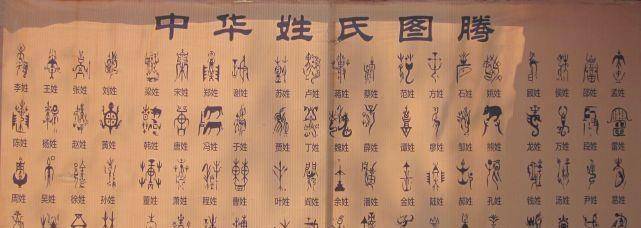 中华姓氏图腾
李姓 王姓 张姓 刘姓 梁姓 宋姓 郑姓 谢姓 苏姓 卢姓 蒋姓 蔡姓 范姓 方姓 石姓 姚姓 顾姓 侯姓 邵姓 孟姓
陈姓 杨姓 赵姓 黄姓 韩姓 唐姓 冯姓 于姓 贾姓 丁姓 魏姓 薛姓 谭姓 廖姓 邹姓 熊姓 龙姓 万姓 段姓 雷姓
周姓 吴姓 徐姓 孙姓 董姓 萧姓 程姓 曹姓 叶姓 阎姓 余姓 潘姓 金姓 陆姓 郝姓 孔姓 钱姓 汤姓 尹姓